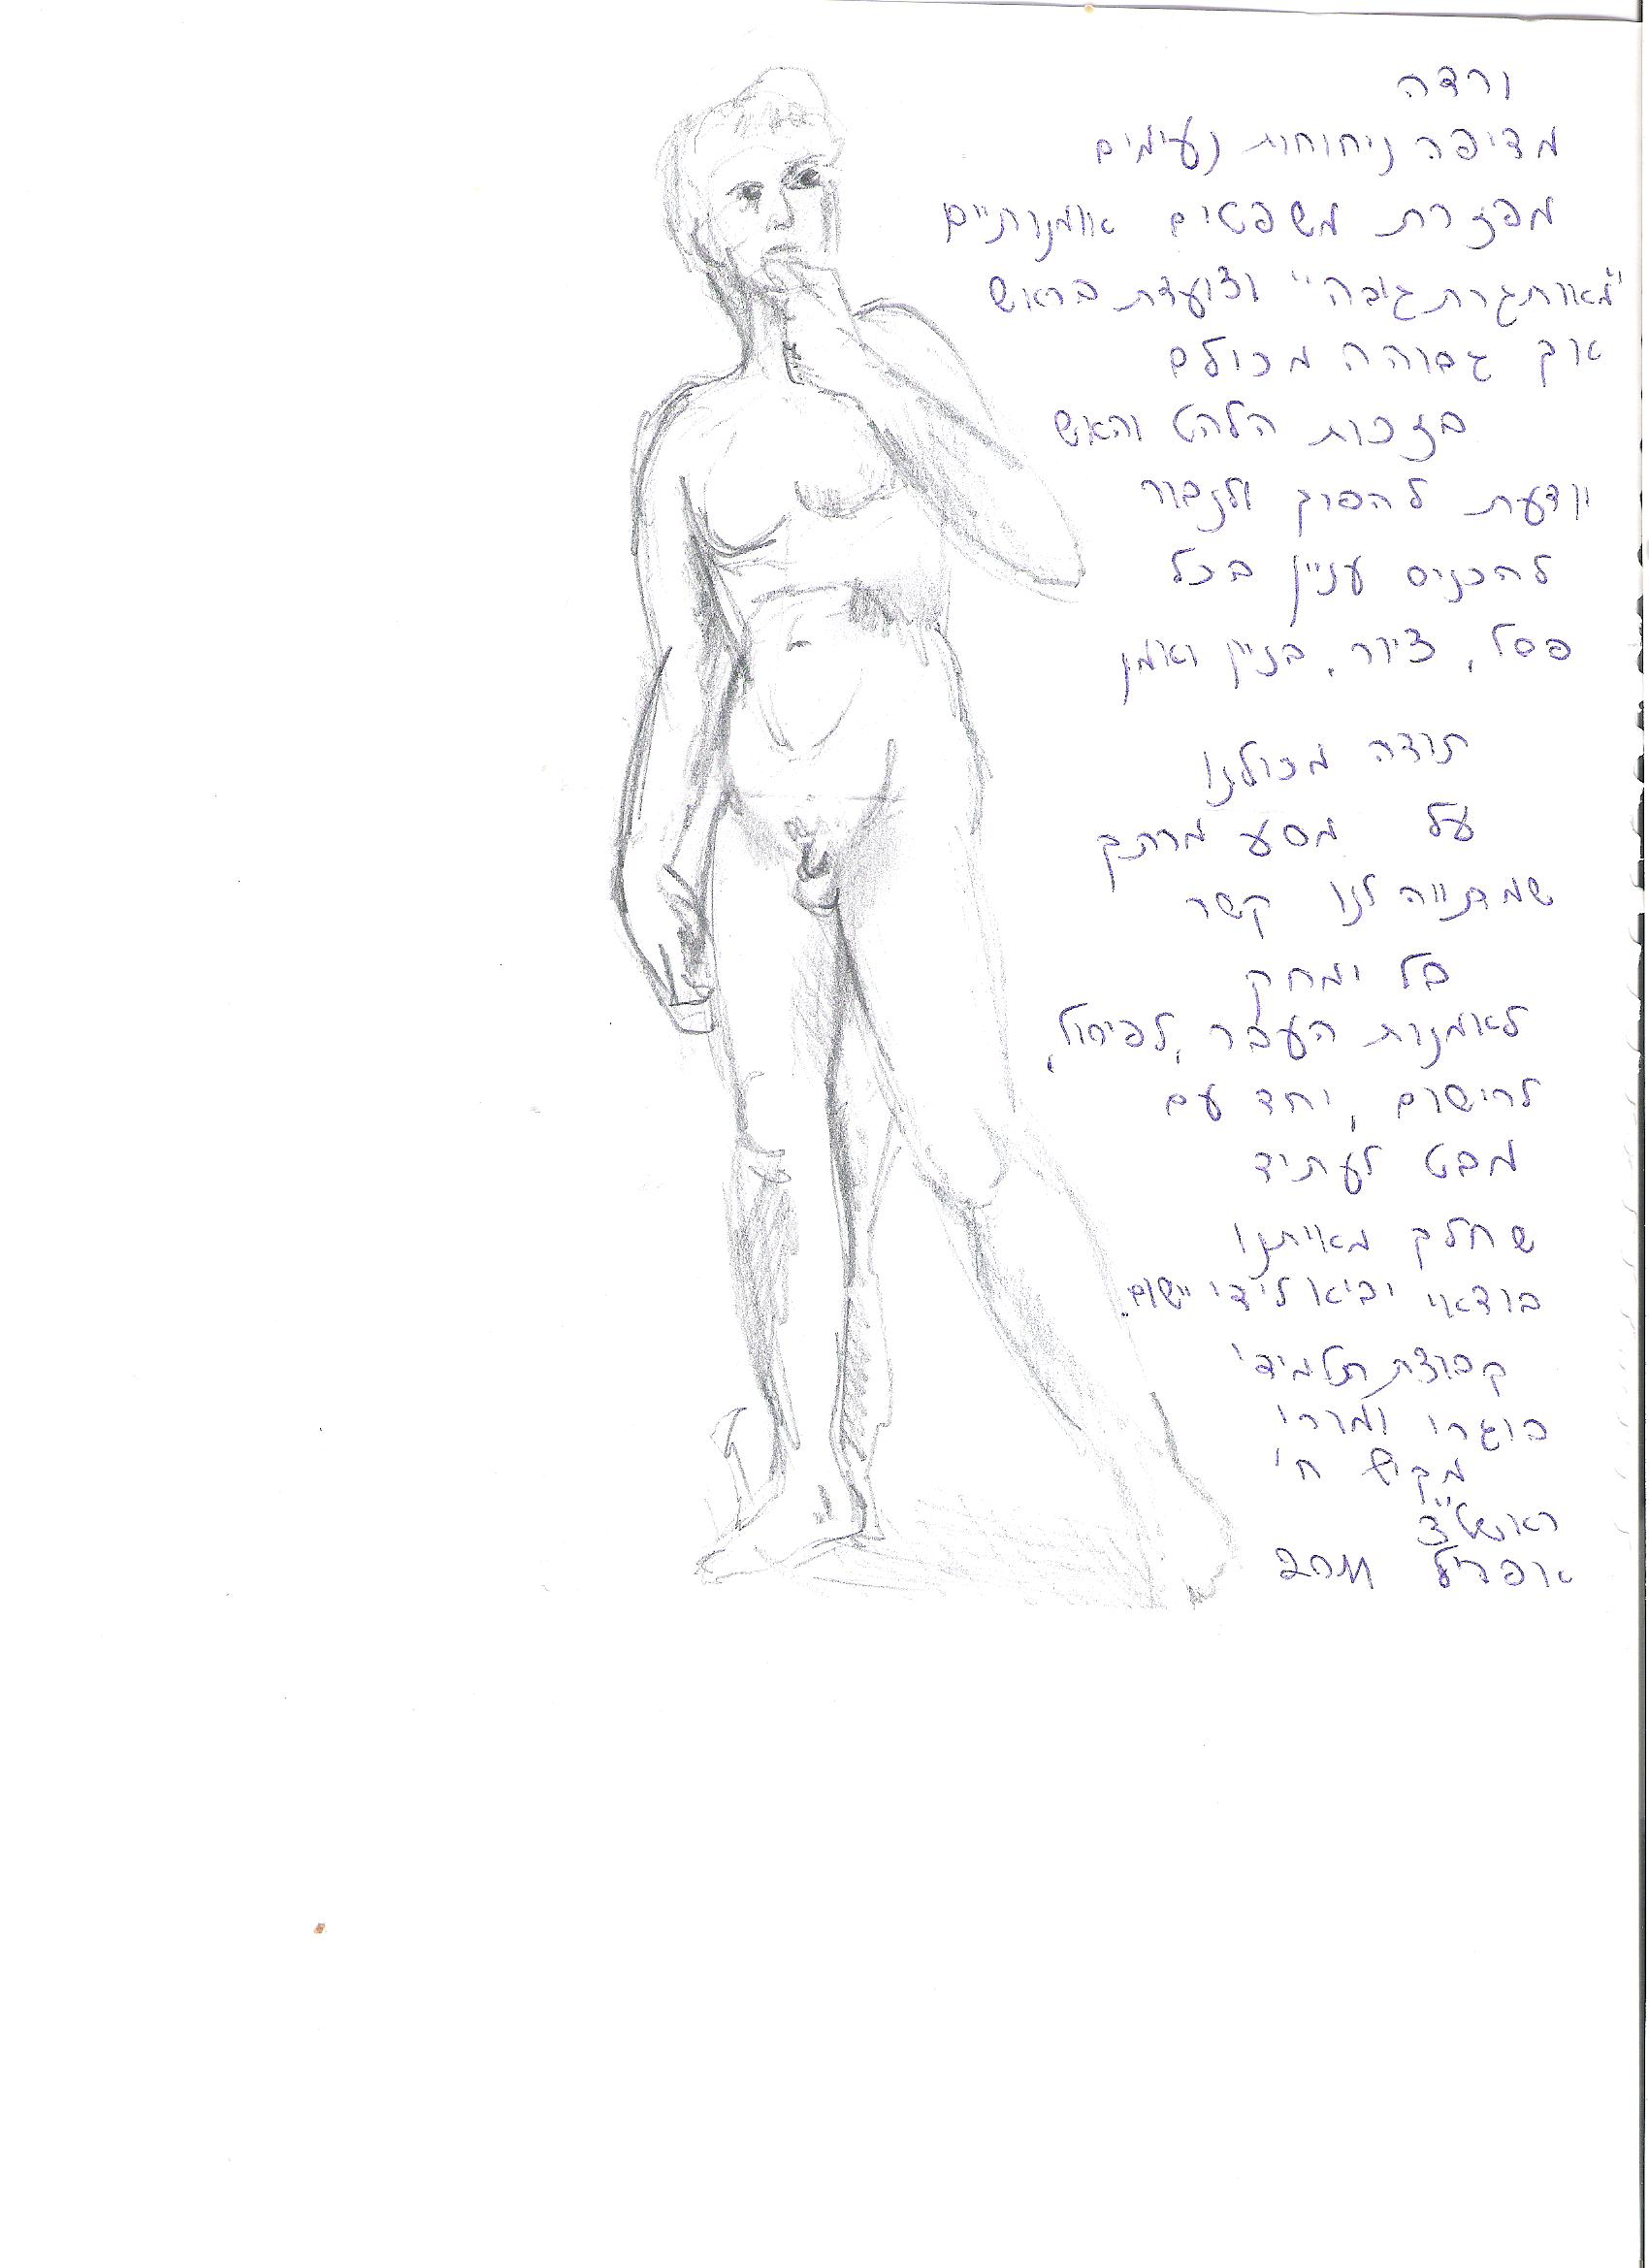 ורדה
מדיפה ניחוחות נעימים
מפזרת משפטים אומנותיים
"מאותגרת גובה" וצועדת בראש
אך גבוהה מכולם
בזכות הלהט והאש
יודעת להפוך ולנבור
להכניס עניין בכל
פסל, ציור, בניין ואמן
תודה מכולנו
על מסע מרתק
שמתווה לנו קשר
בל ימחק
לאומנות העבר, לפיסול,
לרישום, יחד עם
מבט לעתיד
שחלק מאיתנו
בודאי יביאו לידי יישום.
קבוצת תלמידי
בוגרי ומורי
ח'
ראשל"צ
אפריל 2011